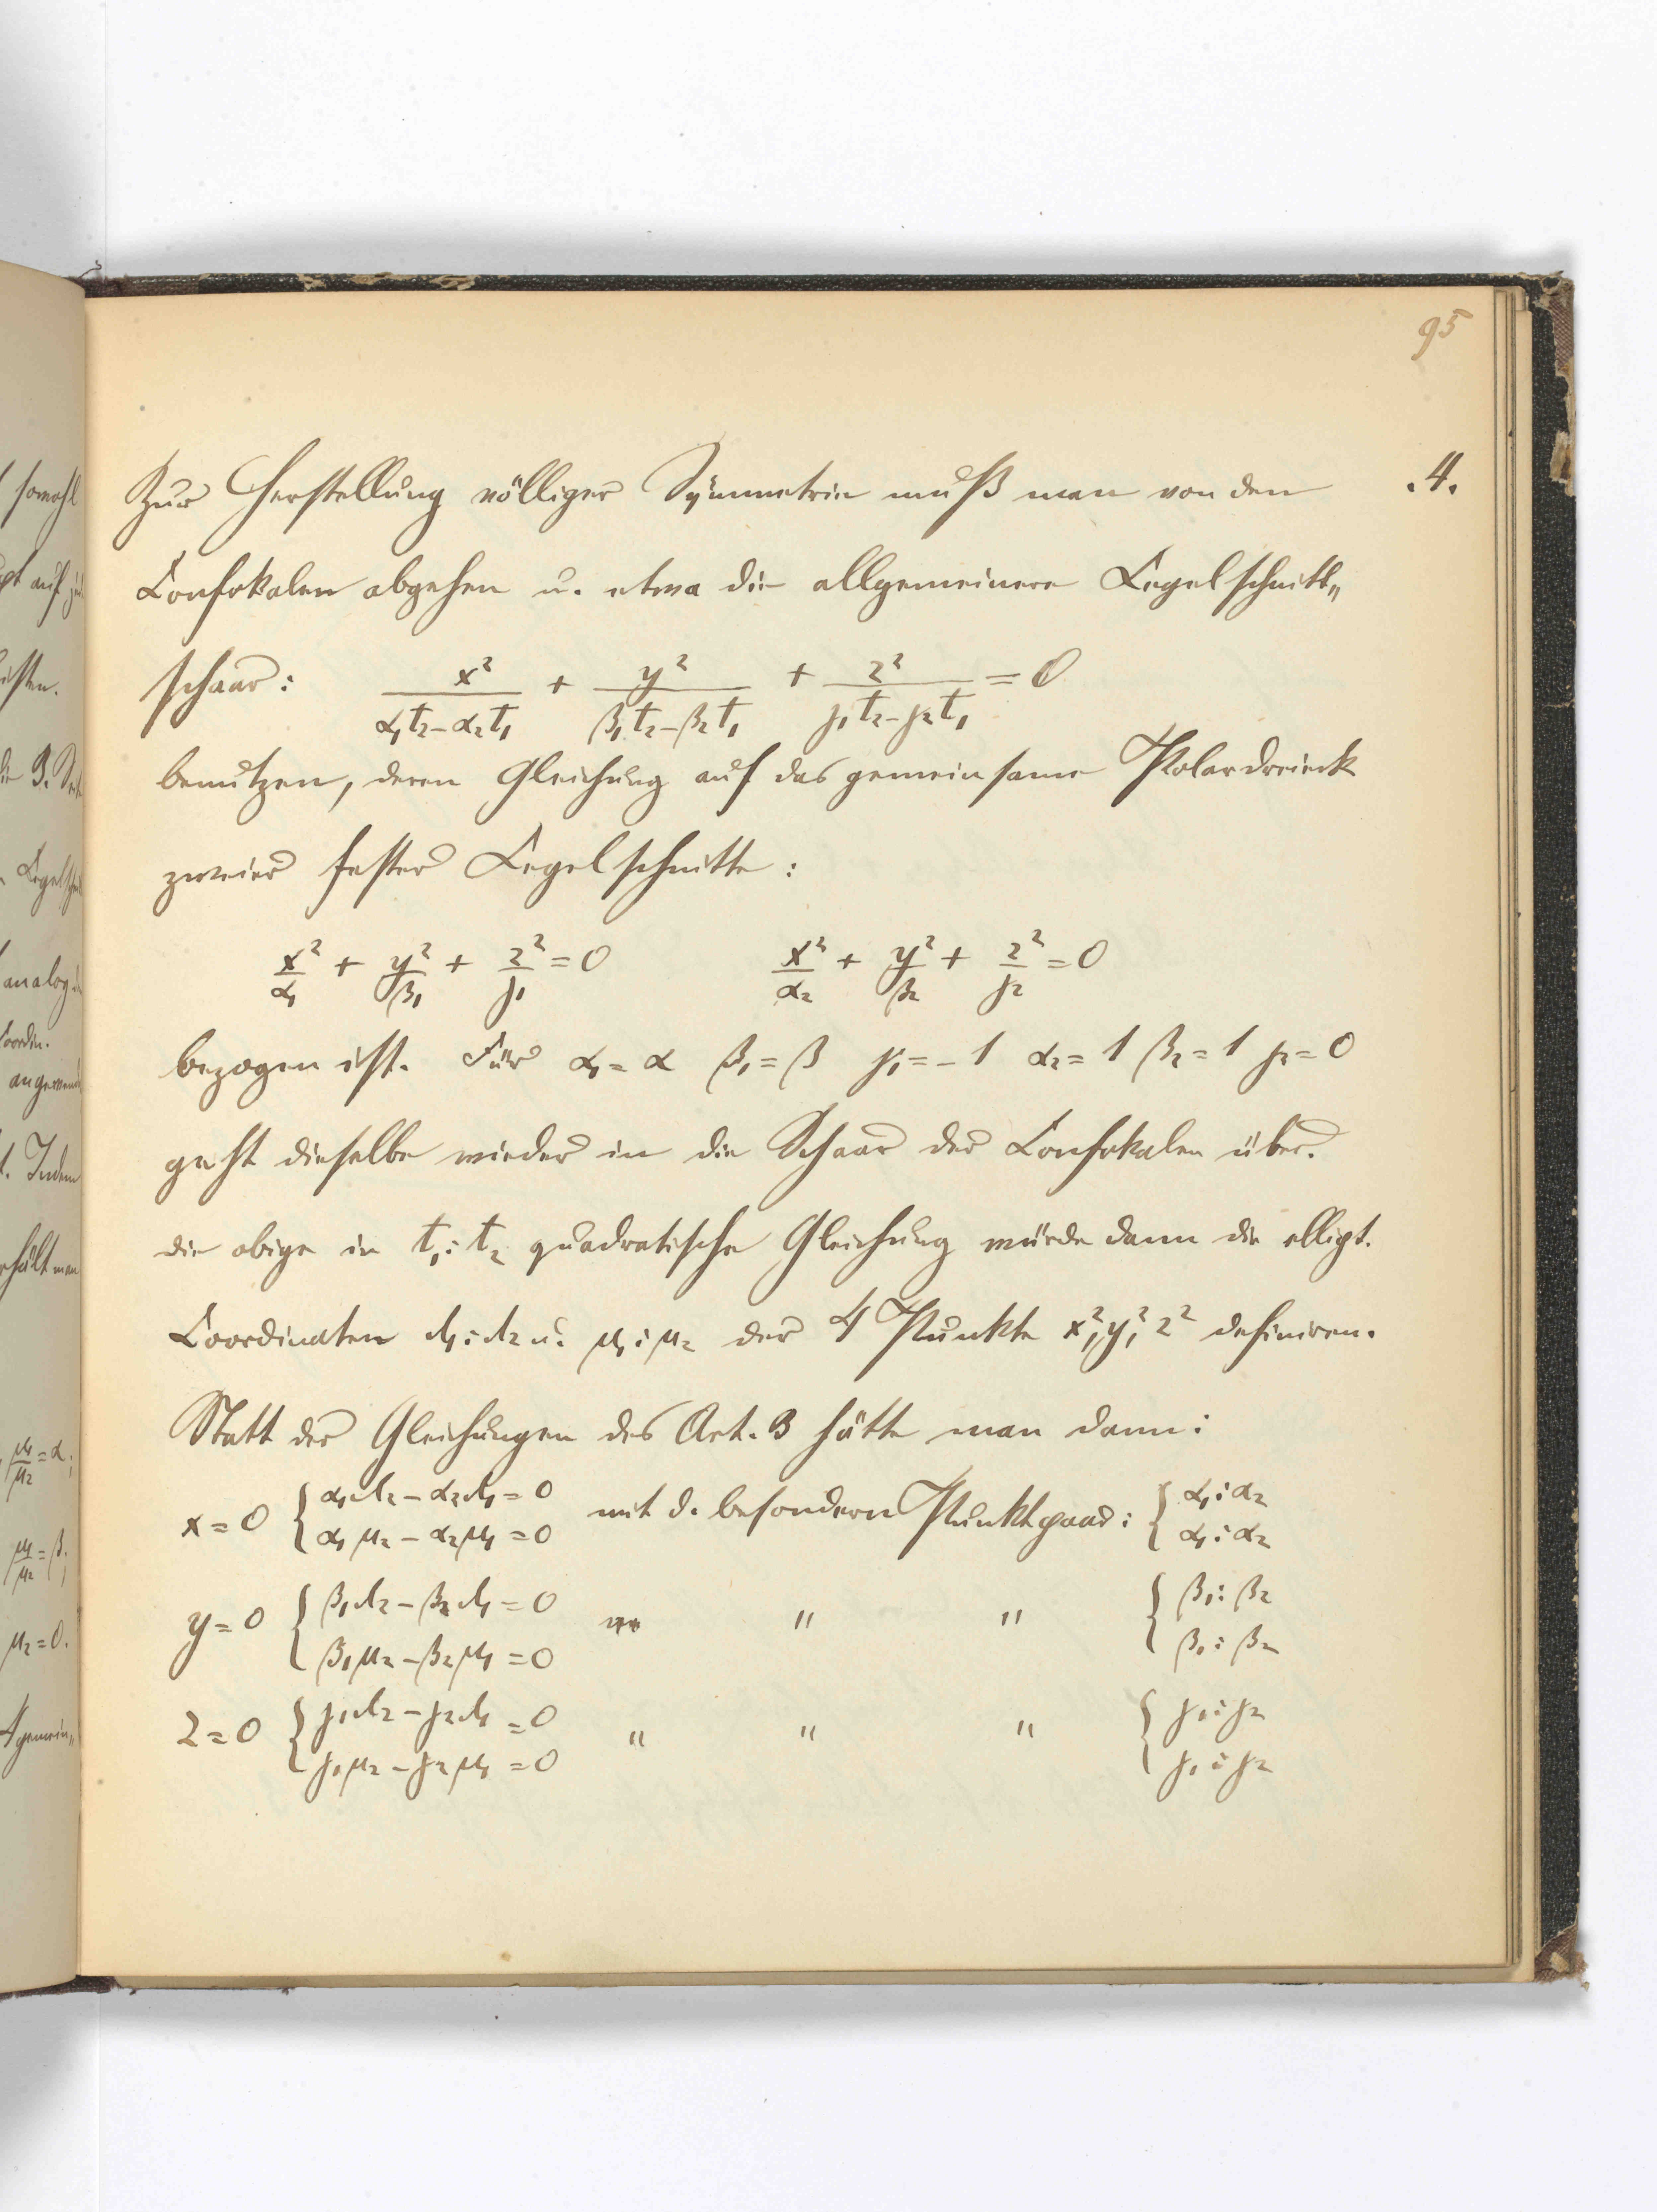 sowohl
auf
isten.
die 3.
Kegelsch
analog
Coordin.
angewend
Indem
erhält man
μ₁/μ₂ = α;
μ₁/μ₂ = β;
μ₂ = 0.
4 gemein„
95
.4.
Zur Herstellung völliger Symmetrie muß man von den
Confokalen abgehen u. etwa die allgemeinere Kegelschnitt„
schaar: x²/(α₁t₂ − α₂t₁) + y²/(β₁t₂ − β₂t₁) + z²/(γ₁t₂ − γ₂t₁) = 0
benutzen, deren Gleichung auf das gemeinsame Polardreieck
zweier fester Kegelschnitte:
x²/α₁ + y²/β₁ + z²/γ₁ = 0 x²/α₂ + y²/β₂ + z²/γ₂ = 0
bezogen ist. Für α₁ = α β₁ = β γ₁ = − 1 α₂ = 1 β₂ = 1 γ₂ = 0
geht dieselbe wieder in die Schaar der Confokalen über.
die obige in t₁ : t₂ quadratische Gleichung würde dann die ellipt.
Coordinaten λ₁ : λ₂ u. μ₁ : μ₂ der 4 Punkte x², y², z² definiren.
Statt der Gleichungen des Art. 3 hätte man dann:
x = 0 { α₁λ₂ − α₂λ₁ = 0 mit d. besondern Punktpaar: { α₁ : α₂
α₁μ₂ − α₂μ₁ = 0 α₁ : α₂
y = 0 { β₁λ₂ − β₂λ₁ = 0 " " " { β₁ : β₂
β₁μ₂ − β₂μ₁ = 0 β₁ : β₂
z = 0 { γ₁λ₂ − γ₂λ₁ = 0 " " " { γ₁ : γ₂
γ₁μ₂ − γ₂μ₁ = 0 γ₁ : γ₂